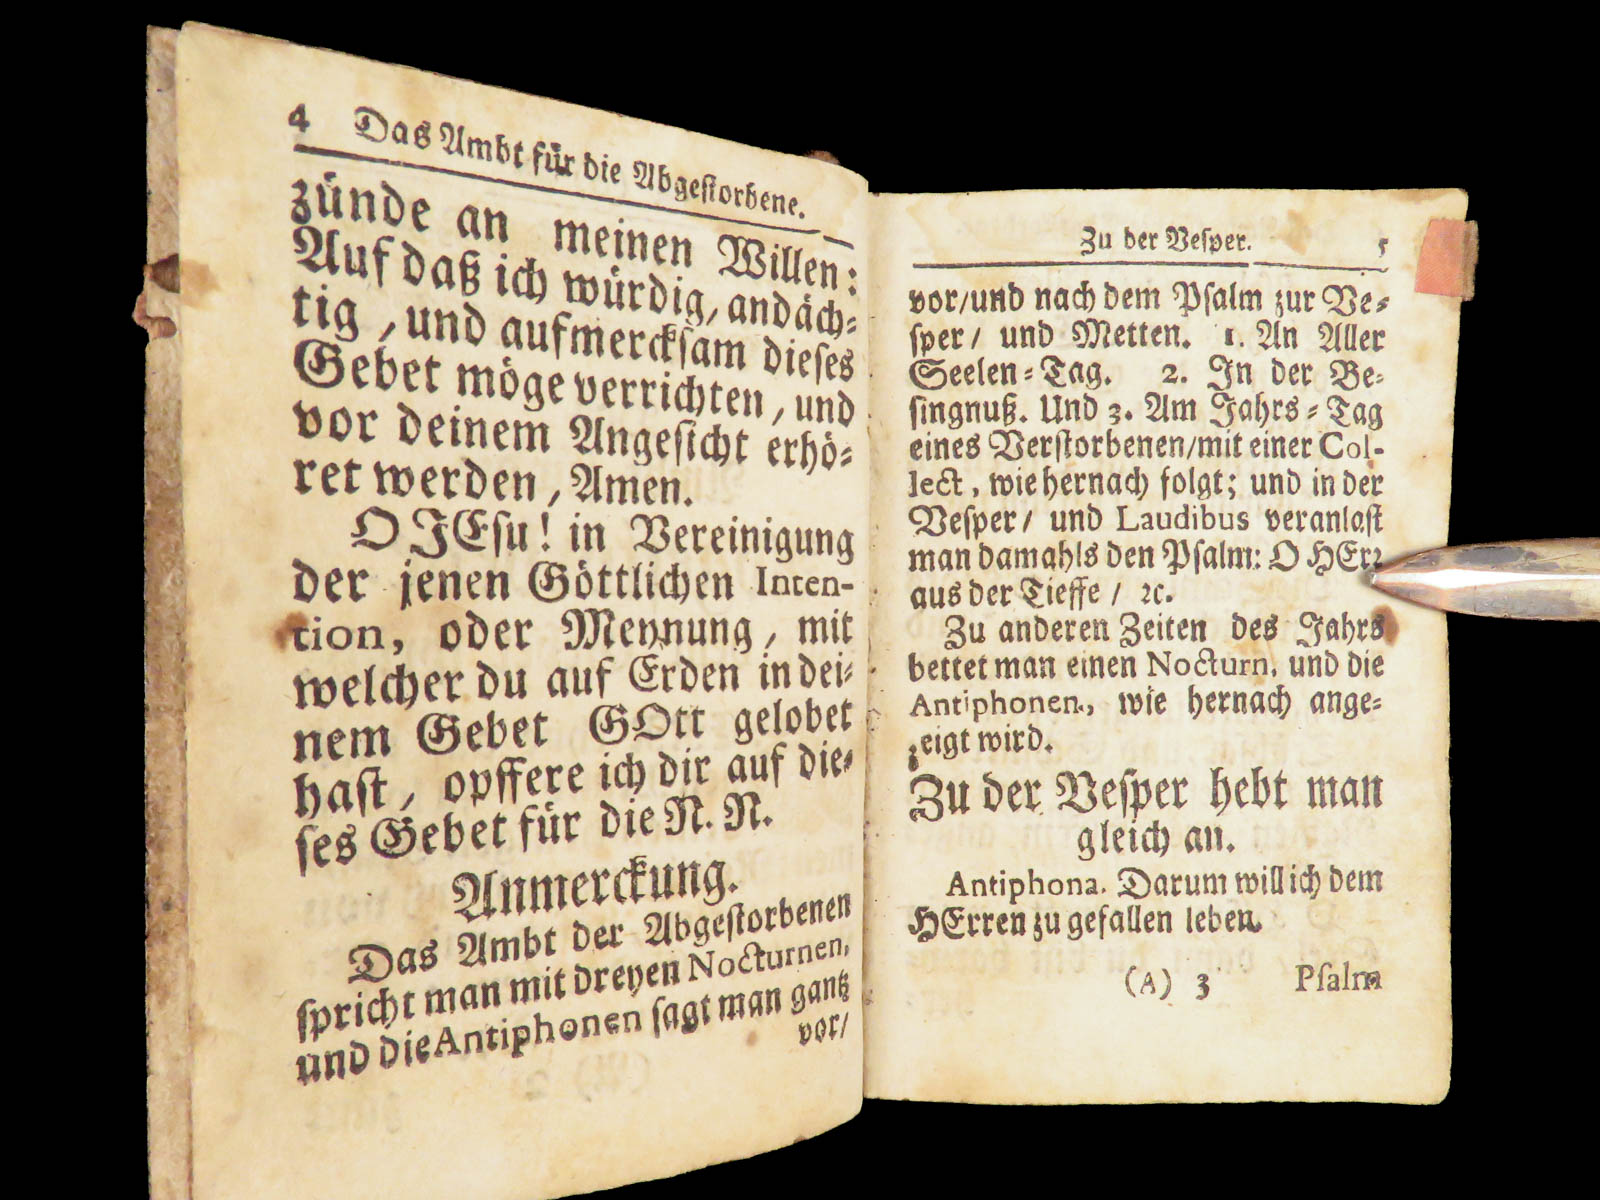 4 Das Ambt für die Abgestorbene.
zünde an meinen Willen:
Auf daß ich würdig, andäch-
tig, und aufmercksam dieses
Gebet möge verrichten, und
vor deinem Angesicht erhö-
ret werden, Amen.
O JEsu! in Vereinigung
der jenen Göttlichen Inten-
tion, oder Meynung, mit
welcher du auf Erden in dei-
nem Gebet GOtt gelobet
hast, opffere ich dir auf die-
ses Gebet für die N. N.
Anmerckung.
Das Ambt der Abgestorbenen
spricht man mit dreyen Nocturnen,
und die Antiphonen sagt man gantz
vor/
Zu der Vesper. 5
vor/und nach dem Psalm zur Ve-
sper/ und Metten. 1. An Aller
Seelen-Tag. 2. In der Be-
singnuß. Und 3. Am Jahrs-Tag
eines Verstorbenen/mit einer Col-
lect, wie hernach folgt; und in der
Vesper/ und Laudibus veranlast
man damahls den Psalm: O HErr
aus der Tieffe / ꝛc.
Zu anderen Zeiten des Jahrs
bettet man einen Nocturn, und die
Antiphonen, wie hernach ange-
zeigt wird.
Zu der Vesper hebt man
gleich an.
Antiphona. Darum will ich dem
HErren zu gefallen leben.
(A) 3 Psalm